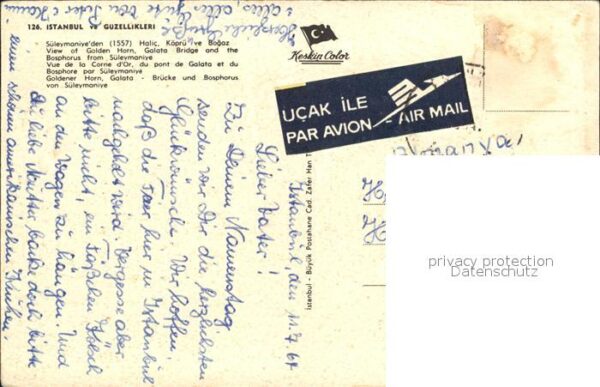 126. ISTANBUL ve GUZELLIKLERI
Süleymaniye'den (1557) Haliç, Köprü ve Boğaz
View of Golden Horn, Galata Bridge and the
Bosphorus from Süleymaniye
Vue de la Corne d'Or, du pont de Galata et du
Bosphore par Süleymaniye
Goldener Horn, Galata - Brücke und Bosphorus
von Süleymaniye
Keskin Color
UÇAK İLE
PAR AVION
AIR MAIL
Istanbul - Büyük Postahane Cad. Zafer Han
Istanbul, den 11.7.64
Lieber Vater!
Zu Deinem Namenstag
senden wir Dir die herzlichsten
Glückwünsche. Wir hoffen,
daß die Tage hier in Istanbul
nachgeholt wird. Vergesse aber
bitte nicht, ein Fäßchen Kölsch
an den Wagen zu hängen. Und
Du liebe Mutter backe doch bitte
einen schönen amerikanischen Kuchen.
Herzliche Grüße
alles alles Gute von Peter
privacy protection
Datenschutz